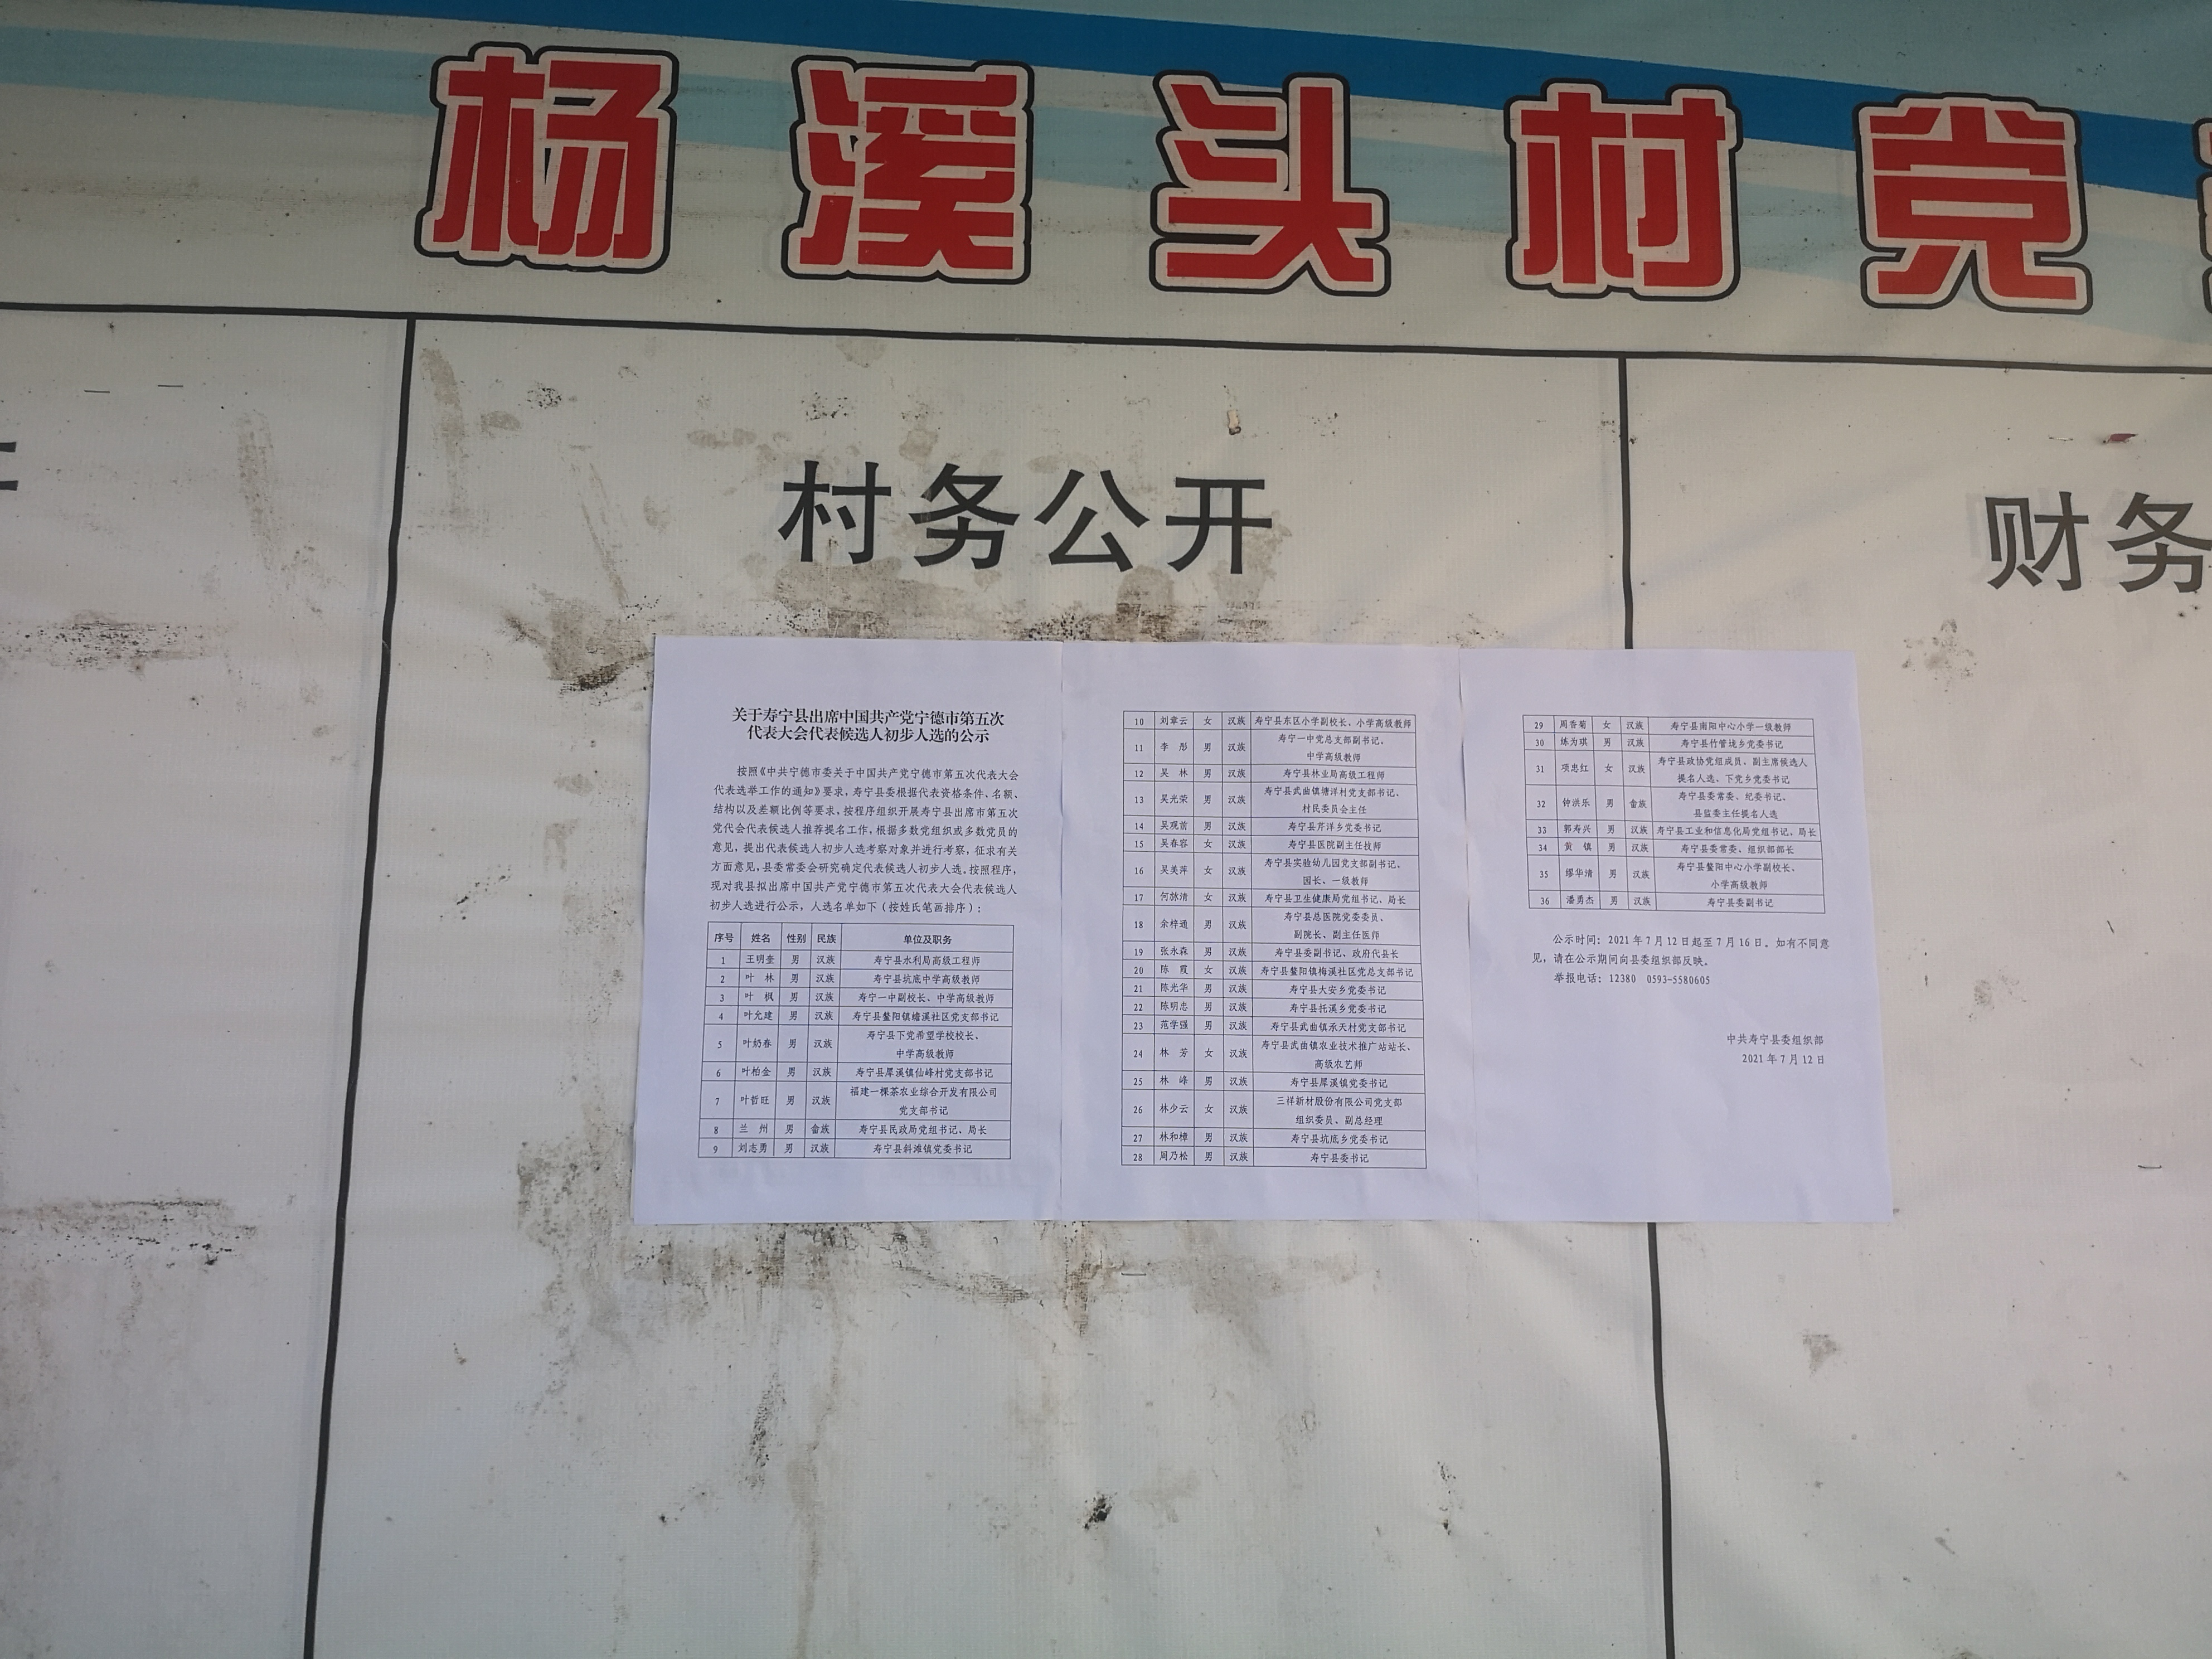 杨溪头村党
村务公开
财务
关于寿宁县出席中国共产党宁德市第五次
代表大会代表候选人初步人选的公示
按照《中共宁德市委关于中国共产党宁德市第五次代表大会
代表选举工作的通知》要求，寿宁县委根据代表资格条件、名额、
结构以及差额比例等要求，按程序组织开展寿宁县出席市第五次
党代会代表候选人推荐提名工作，根据多数党组织或多数党员的
意见，提出代表候选人初步人选考察对象并进行考察，征求有关
方面意见，县委常委会研究确定代表候选人初步人选。按照程序，
现对我县拟出席中国共产党宁德市第五次代表大会代表候选人
初步人选进行公示，人选名单如下（按姓氏笔画排序）：
序号 姓名 性别 民族 单位及职务
1 王明奎 男 汉族 寿宁县水利局高级工程师
2 叶林 男 汉族 寿宁县坑底中学高级教师
3 叶枫 男 汉族 寿宁一中副校长、中学高级教师
4 叶允建 男 汉族 寿宁县鳌阳镇蟾溪社区党支部书记
5 叶奶春 男 汉族 寿宁县下党希望学校校长、
中学高级教师
6 叶柏金 男 汉族 寿宁县犀溪镇仙峰村党支部书记
7 叶哲旺 男 汉族 福建一棵茶农业综合开发有限公司
党支部书记
8 兰州 男 畲族 寿宁县民政局党组书记、局长
9 刘志勇 男 汉族 寿宁县斜滩镇党委书记
10 刘章云 女 汉族 寿宁县东区小学副校长、小学高级教师
11 李彤 男 汉族 寿宁一中党总支部副书记、
中学高级教师
12 吴林 男 汉族 寿宁县林业局高级工程师
13 吴光荣 男 汉族 寿宁县武曲镇塘洋村党支部书记、
村民委员会主任
14 吴观前 男 汉族 寿宁县芹洋乡党委书记
15 吴春容 女 汉族 寿宁县医院副主任技师
16 吴美萍 女 汉族 寿宁县实验幼儿园党支部副书记、
园长、一级教师
17 何脉清 女 汉族 寿宁县卫生健康局党组书记、局长
18 余梓通 男 汉族 寿宁县总医院党委委员、
副院长、副主任医师
19 张永森 男 汉族 寿宁县委副书记、政府代县长
20 陈霞 女 汉族 寿宁县鳌阳镇梅溪社区党总支部书记
21 陈光华 男 汉族 寿宁县大安乡党委书记
22 陈明忠 男 汉族 寿宁县托溪乡党委书记
23 范学强 男 汉族 寿宁县武曲镇承天村党支部书记
24 林芳 女 汉族 寿宁县武曲镇农业技术推广站站长、
高级农艺师
25 林峰 男 汉族 寿宁县犀溪镇党委书记
26 林少云 女 汉族 三祥新材股份有限公司党支部
组织委员、副总经理
27 林和樟 男 汉族 寿宁县坑底乡党委书记
28 周乃松 男 汉族 寿宁县委书记
29 周香菊 女 汉族 寿宁县南阳中心小学一级教师
30 练为琪 男 汉族 寿宁县竹管垅乡党委书记
31 项忠红 女 汉族 寿宁县政协党组成员、副主席候选人
提名人选、下党乡党委书记
32 钟洪乐 男 畲族 寿宁县委常委、纪委书记、
县监委主任提名人选
33 郭寿兴 男 汉族 寿宁县工业和信息化局党组书记、局长
34 黄镇 男 汉族 寿宁县委常委、组织部部长
35 缪华清 男 汉族 寿宁县鳌阳中心小学副校长、
小学高级教师
36 潘勇杰 男 汉族 寿宁县委副书记
公示时间：2021年7月12日起至7月16日。如有不同意
见，请在公示期间向县委组织部反映。
举报电话：12380 0593-5580605
中共寿宁县委组织部
2021年7月12日